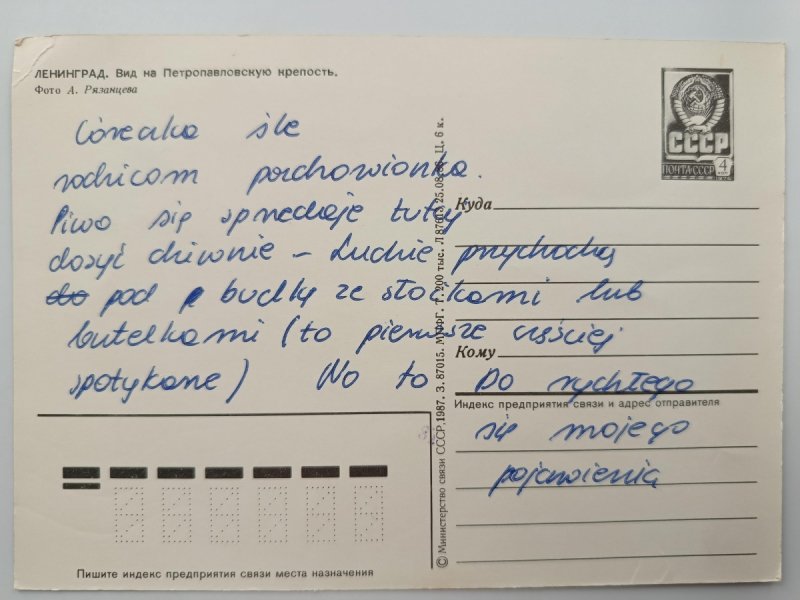 ЛЕНИНГРАД. Вид на Петропавловскую крепость.
Фото А. Рязанцева
СССР
ПОЧТА СССР 4
Córeczka śle
rodzicom pozdrowionka.
Piwo się sprzedaje tutaj
dosyć dziwnie – Ludzie przychodzą
do pod budkę ze słoikami lub
butelkami (to pierwsze częściej
spotykane) No to Do rychłego
się mojego
pojawienia
Куда
Кому
Индекс предприятия связи и адрес отправителя
© Министерство связи СССР, 1987. З. 87015. МПФГ. Т. 200 тыс. Л 87615, 25.08. Ц. 6 к.
Пишите индекс предприятия связи места назначения